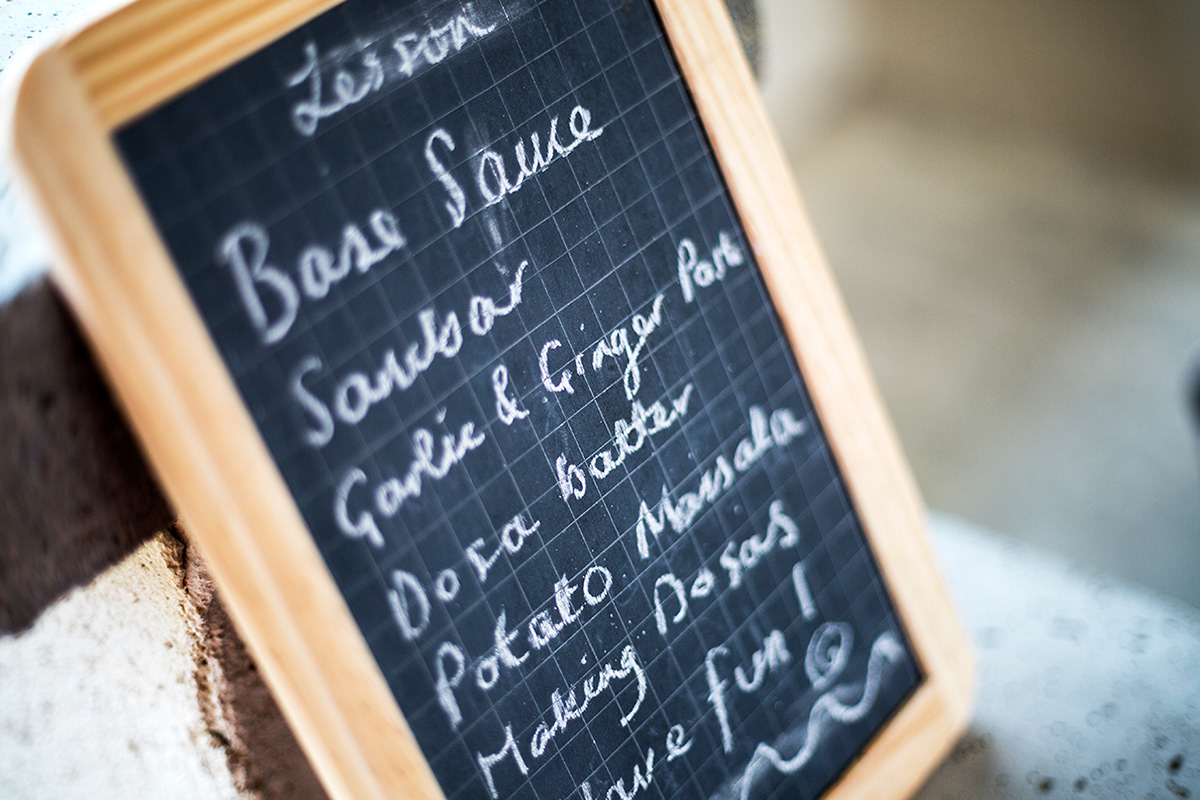 Lesson
Base Sauce
Sambar
Garlic & Ginger Paste
Dosa batter
Potato Massala
Making Dosas
Have fun!